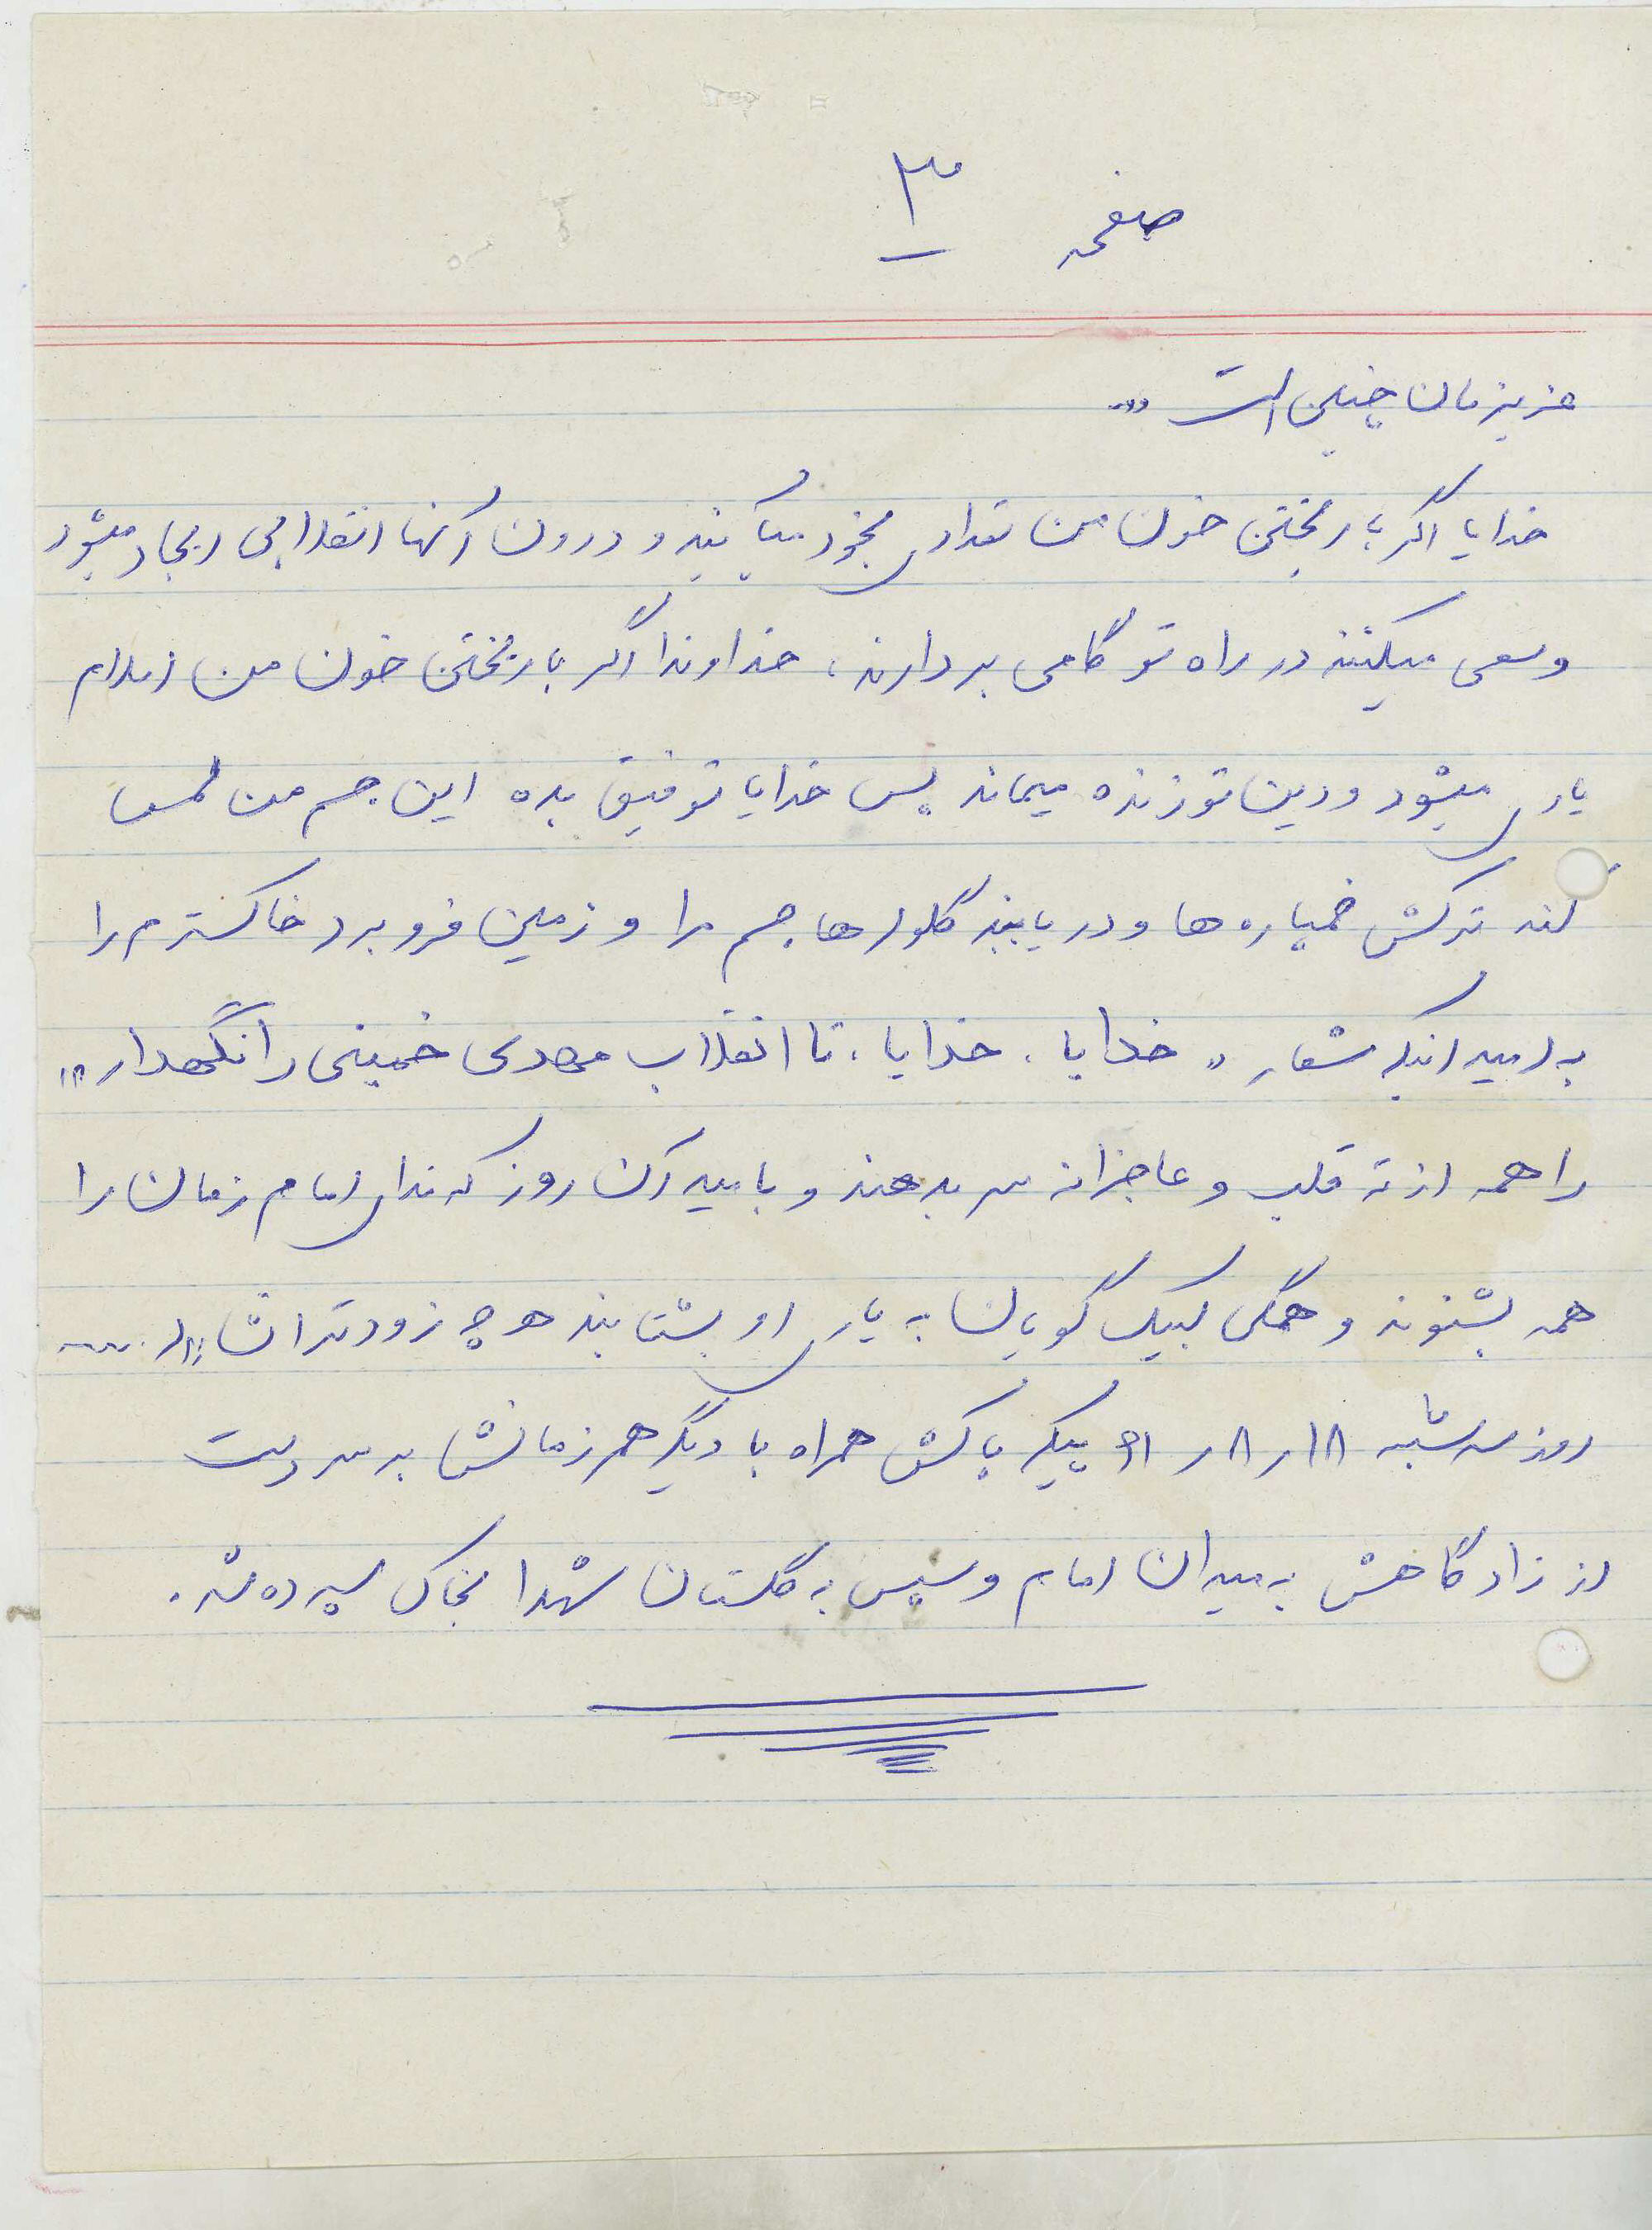 صفحه ۳
عزیزمان چنین است ...
خدایا اگر با ریختن خون من تعدادی بخود میآیند و درون آنها انقلابی ایجاد میشود
وسعی میکنند در راه تو گامی بردارند، خداوندا اگر با ریختن خون من اسلام
یاری میشود و دین تو زنده میماند پس خدایا توفیق بده این جسم من لمس
کند ترکش خمپاره ها و دریابند گلوله ها جسم مرا و زمین فرو برد خاکسترم را
به امید اینکه شعار " خدایا، خدایا، تا انقلاب مهدی خمینی را نگهدار "
را همه از ته قلب و عاجزانه سر بدهند و بامید آن روز که ندای امام زمان را
همه بشنوند و همگی لبیک گویان به یاری او بشتابند هر چه زودتر انشاء الله ....
روز سه شنبه ۱۸ر۸ر۶۱ پیکر پاکش همراه با دیگر همرزمانش به سر دست
از زادگاهش به میدان امام و سپس به گلستان شهدا بخاک سپرده شد.